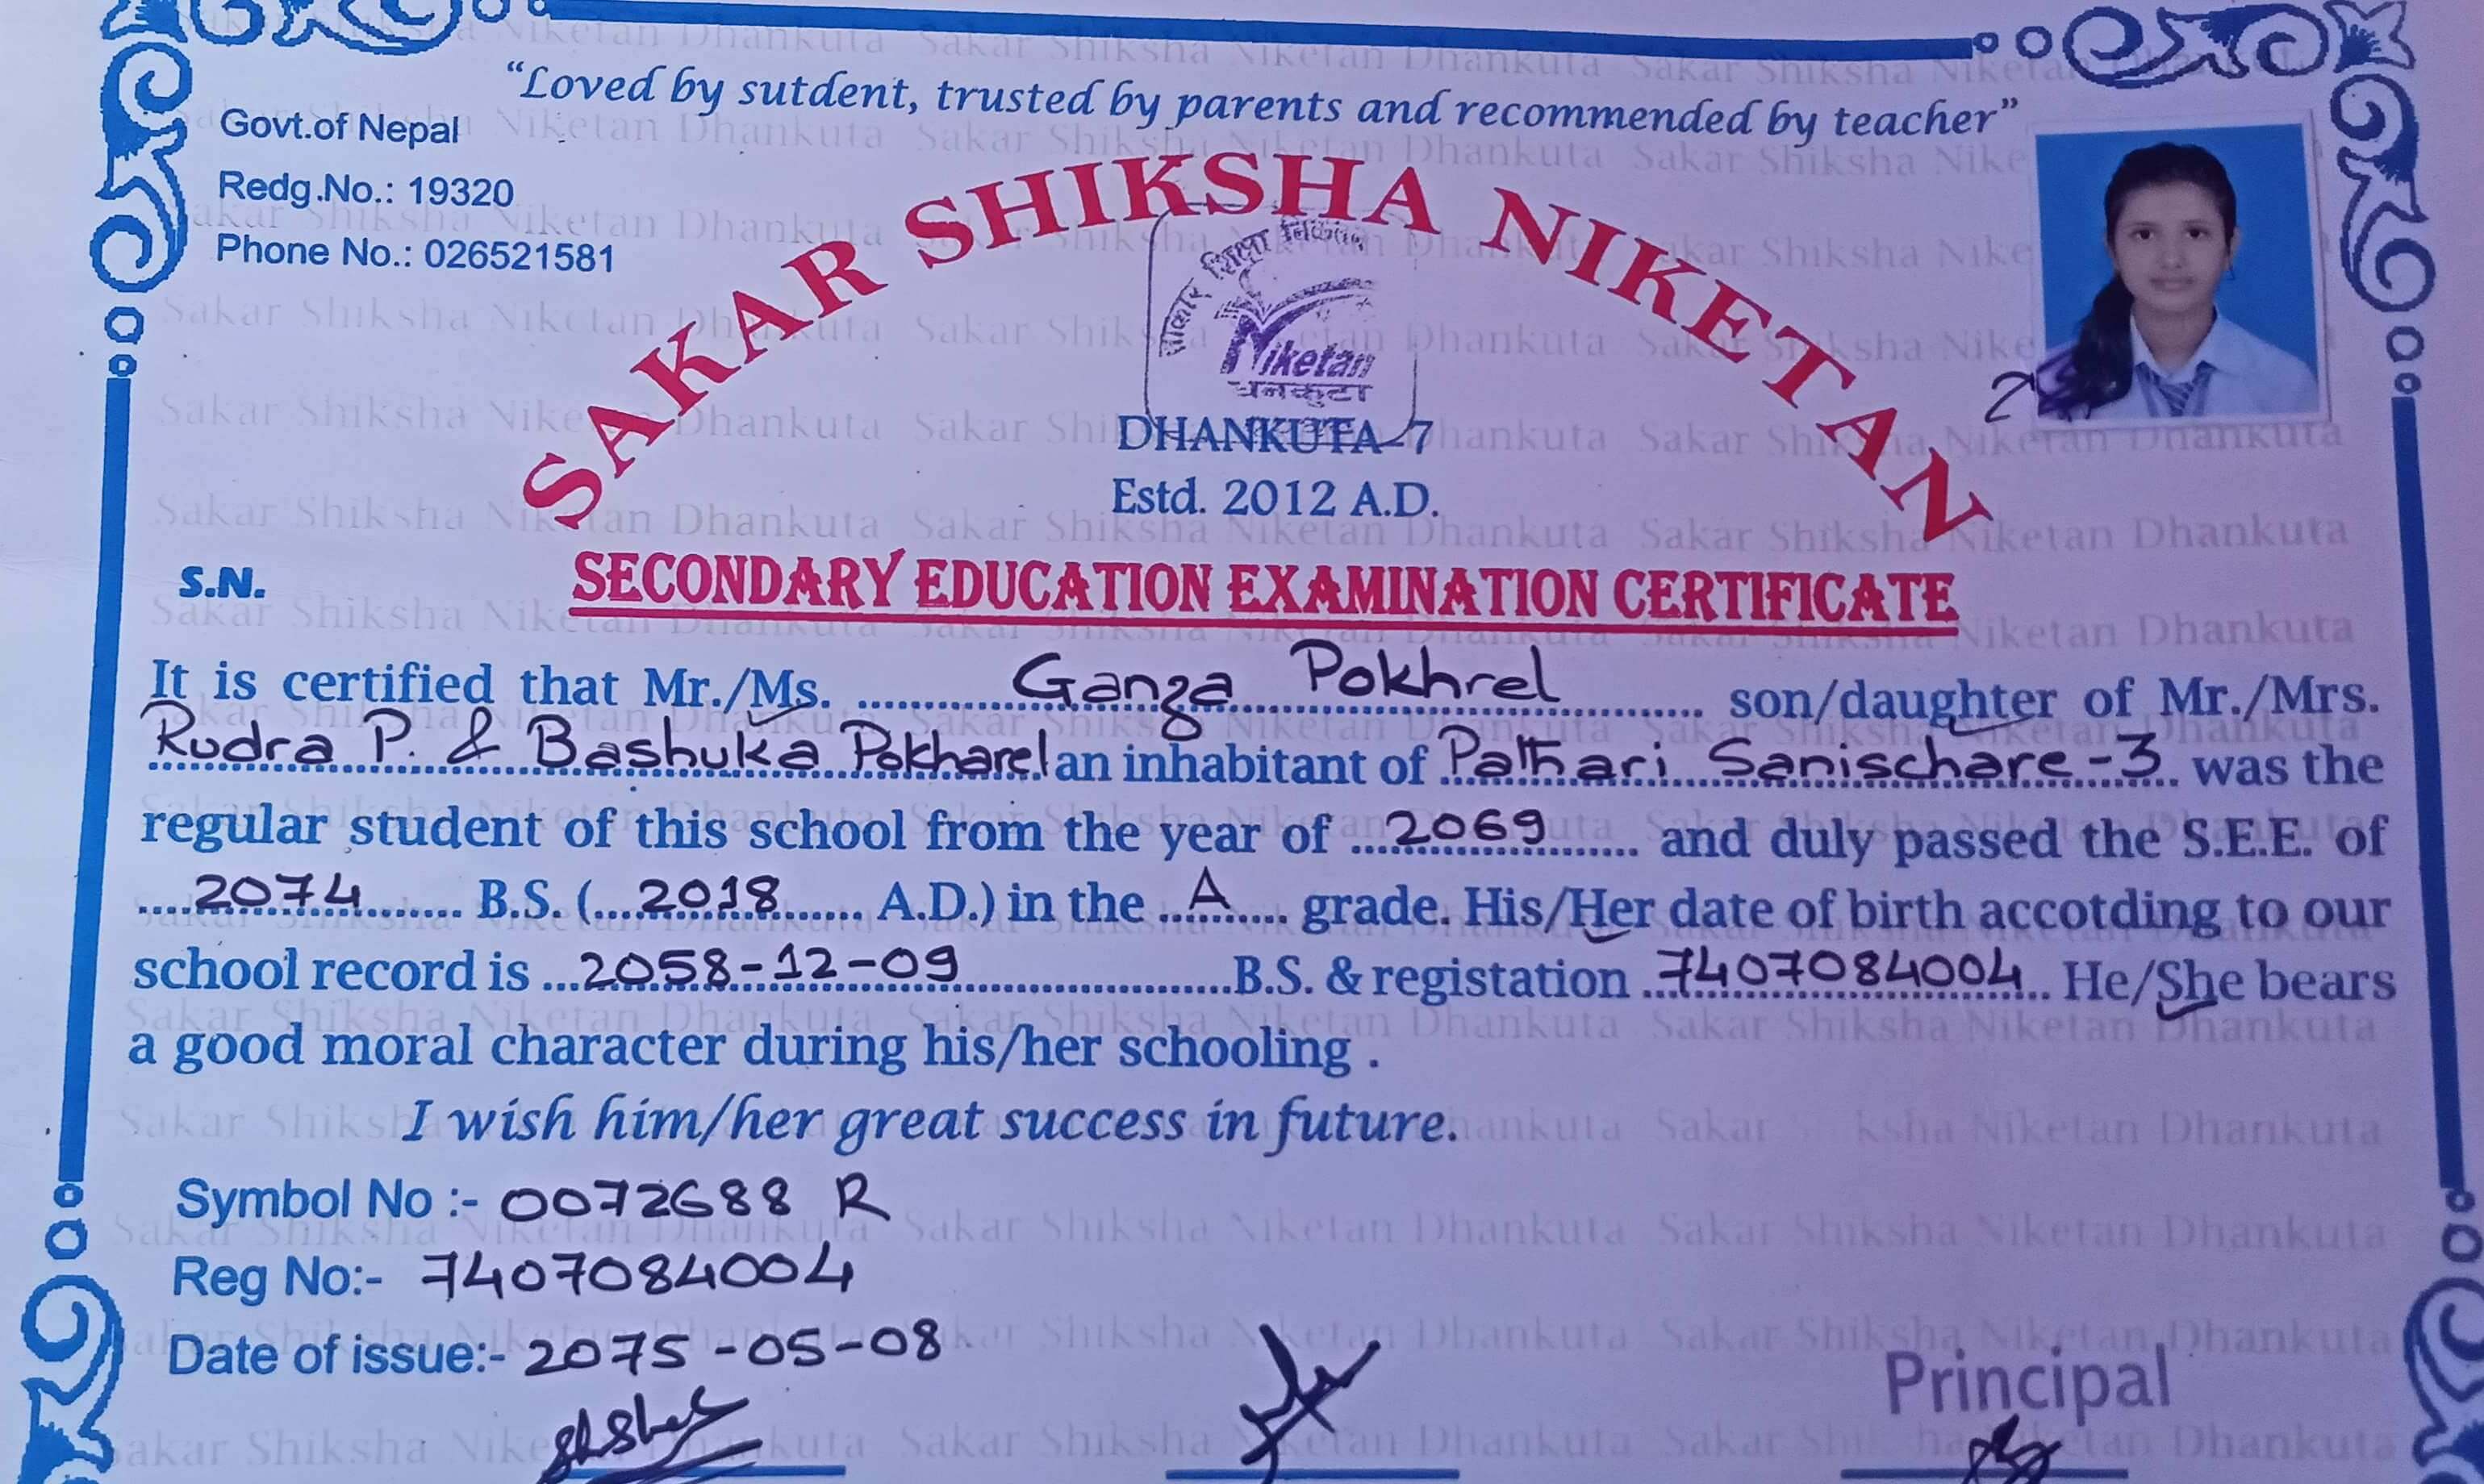 "Loved by sutdent, trusted by parents and recommended by teacher"
Govt.of Nepal
Redg.No.: 19320
Phone No.: 026521581
SAKAR SHIKSHA NIKETAN
साकार शिक्षा निकेतन
Niketan
धनकुटा
DHANKUTA-7
Estd. 2012 A.D.
S.N.
SECONDARY EDUCATION EXAMINATION CERTIFICATE
It is certified that Mr./Ms. Ganga Pokhrel son/daughter of Mr./Mrs.
Rudra P. & Bashuka Pokharel an inhabitant of Pathari Sanischare-3 was the
regular student of this school from the year of 2069 and duly passed the S.E.E. of
2074 B.S. (2018 A.D.) in the A grade. His/Her date of birth accotding to our
school record is 2058-12-09 B.S. & registation 7407084004 He/She bears
a good moral character during his/her schooling .
I wish him/her great success in future.
Symbol No :- 0072688 R
Reg No:- 7407084004
Date of issue:- 2075-05-08
Principal